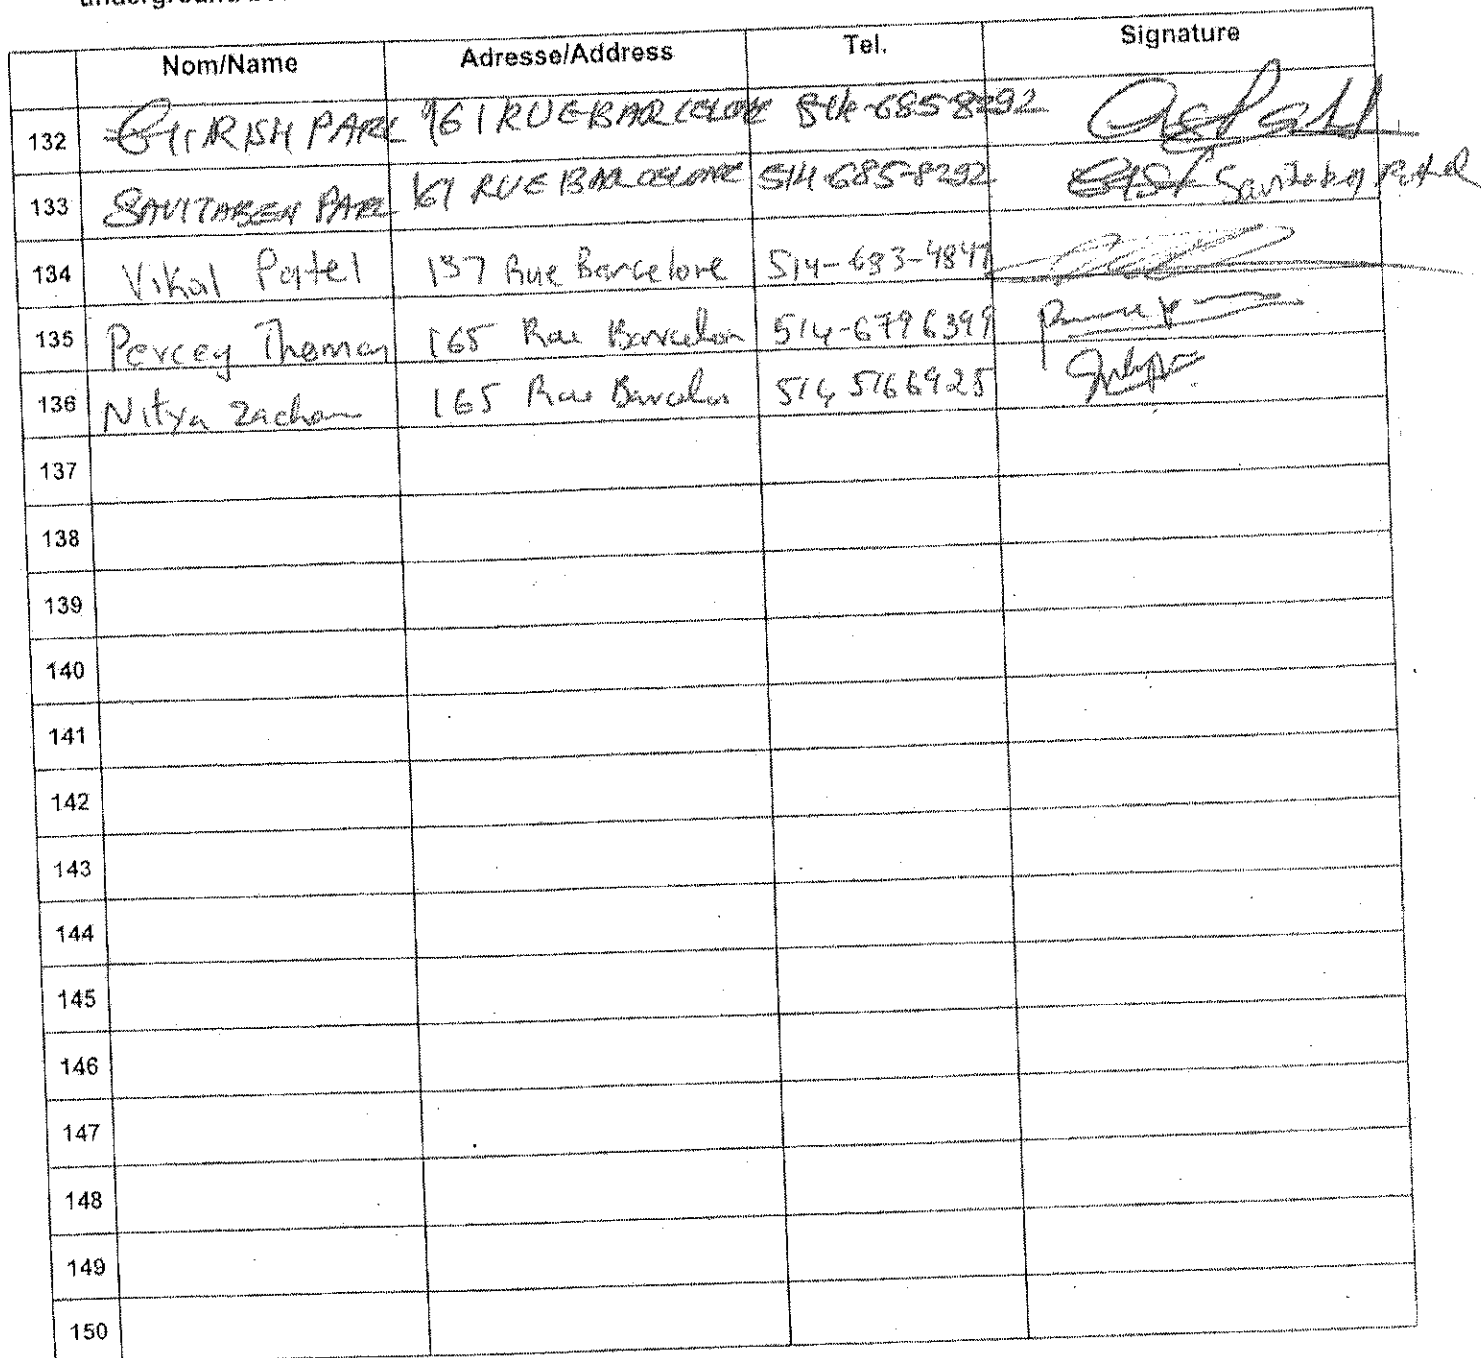 Nom/Name Adresse/Address Tel. Signature
132 GIRISH PATEL 161 RUE BARCELONE 514-685-8292
133 SAVITABEN PATEL 161 RUE BARCELONE 514-685-8292 Savitaben Patel
134 Vikal Patel 137 Rue Barcelone 514-683-4847
135 Percey Thomas 165 Rue Barcelon 514-6796399
136 Nitya Zachar 165 Rue Barcelon 514 5166925
137
138
139
140
141
142
143
144
145
146
147
148
149
150